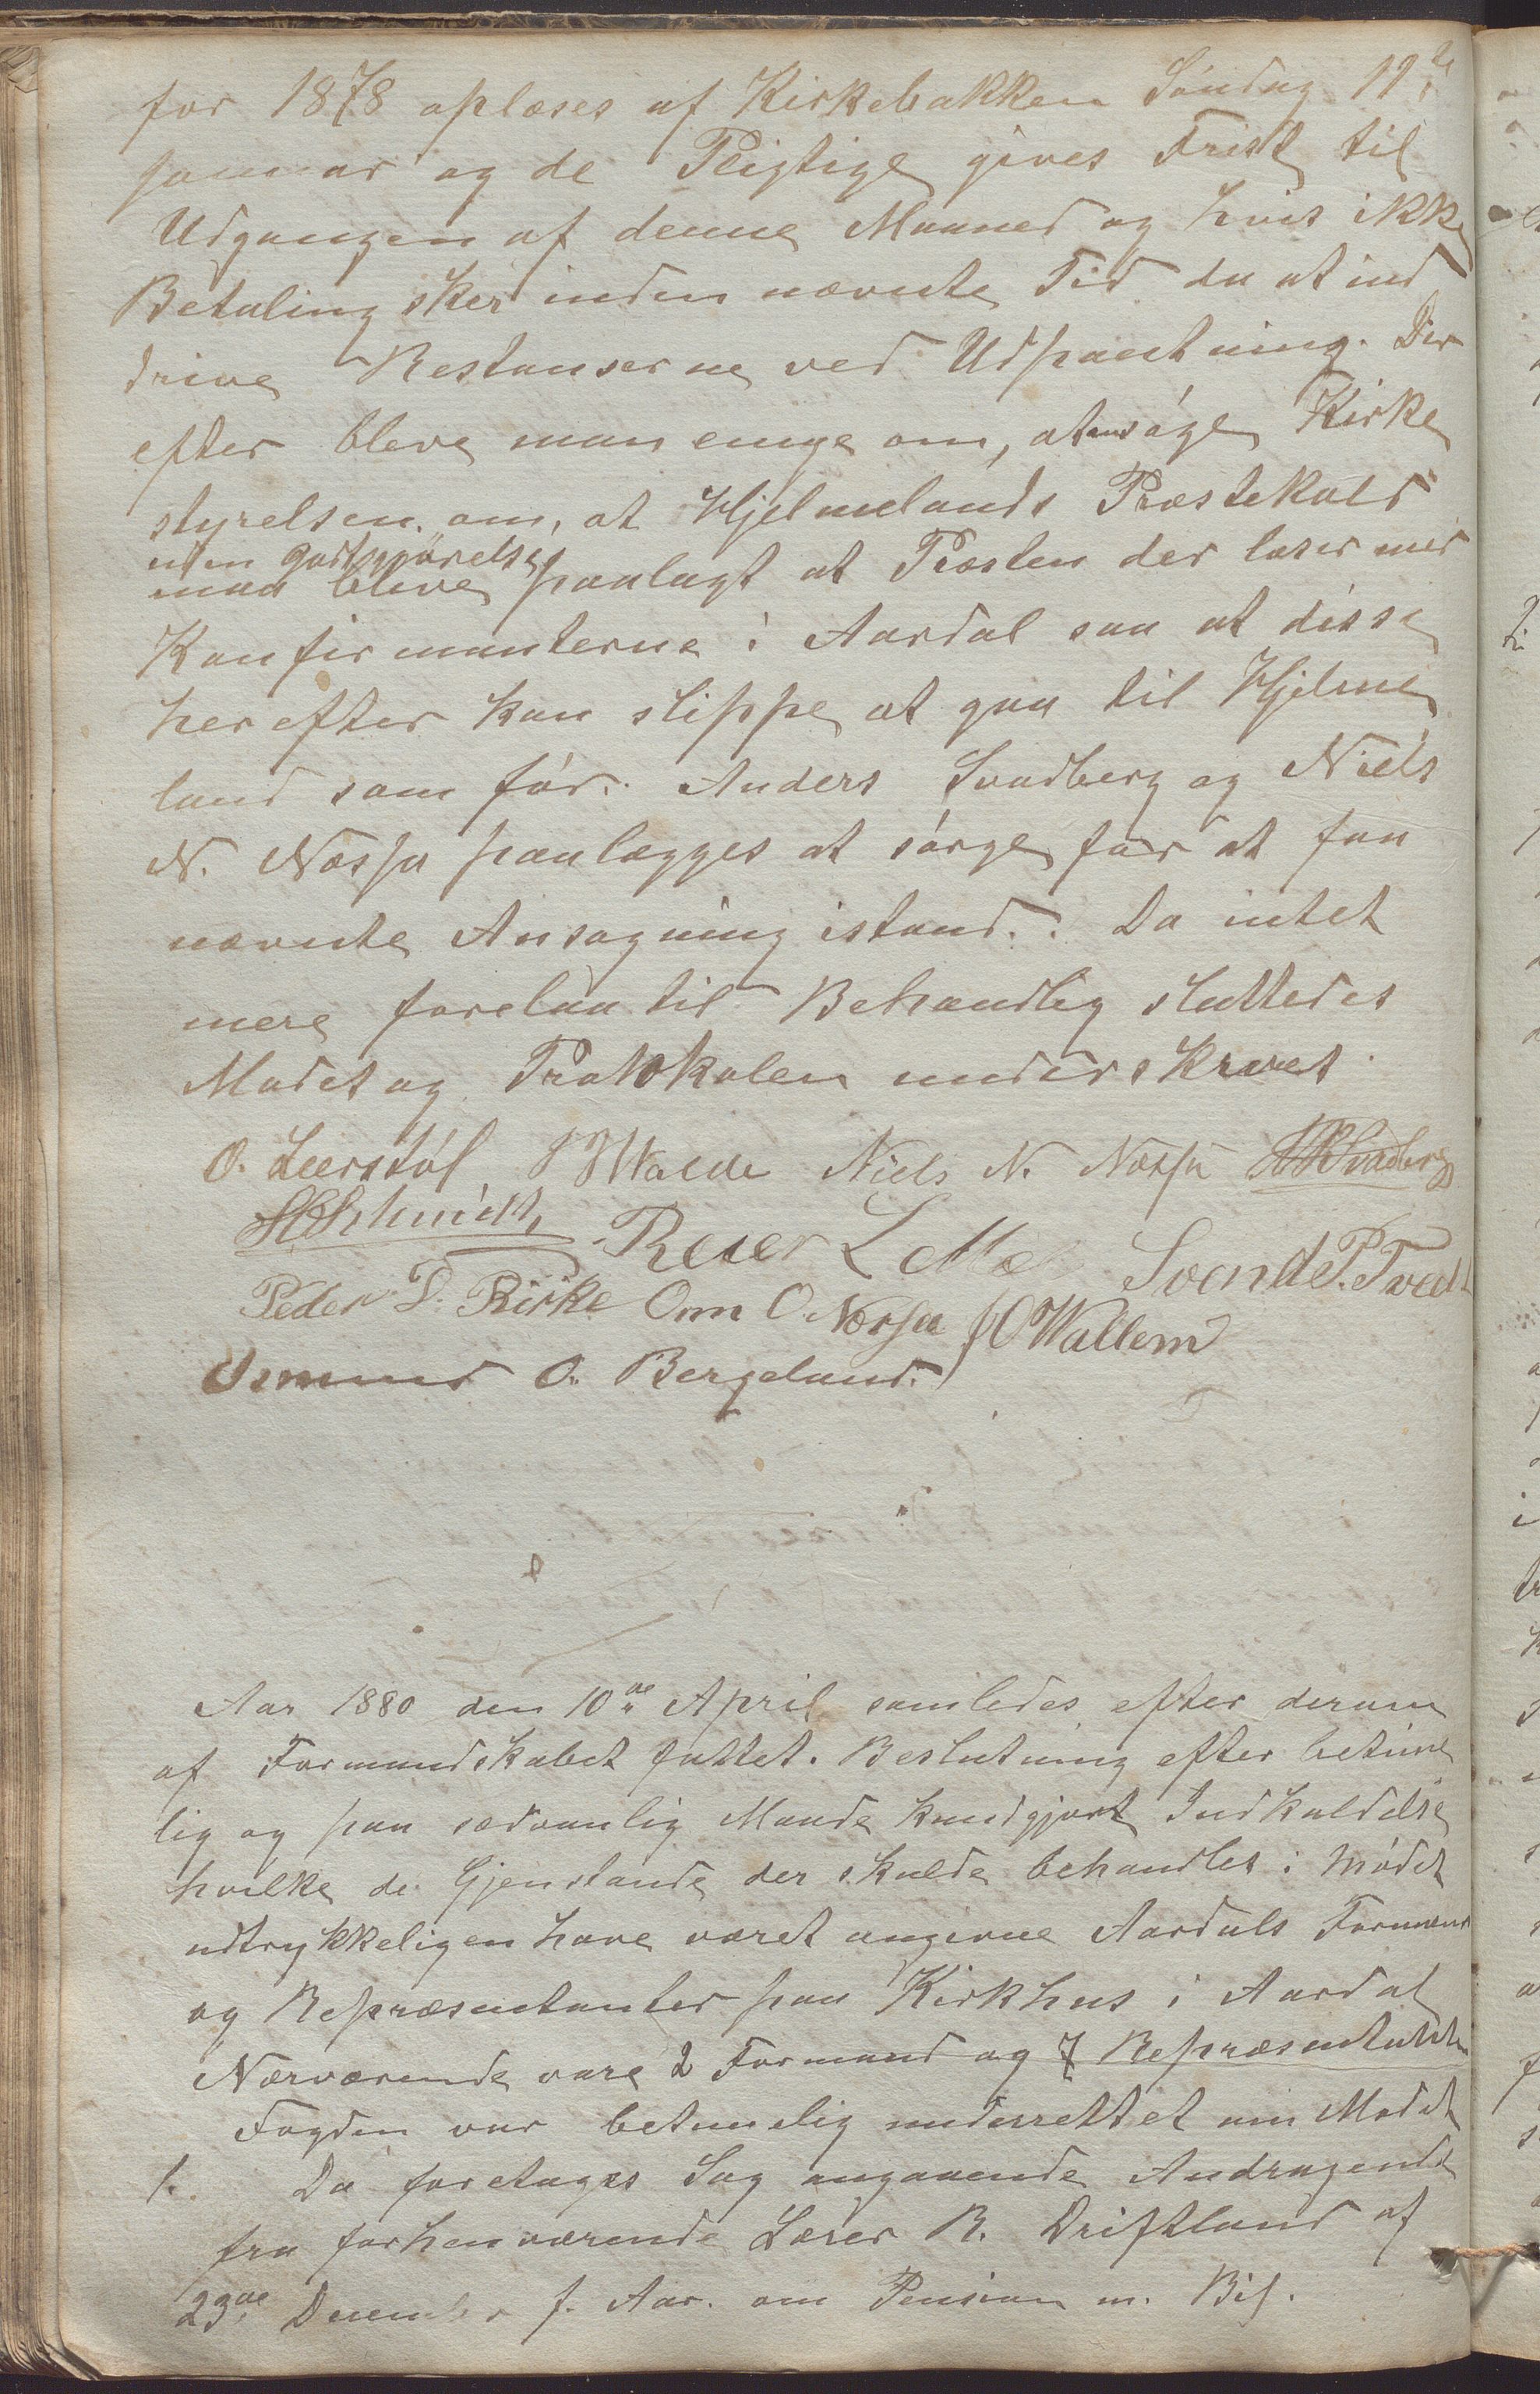 for 1878 oplæses af Kirkebakken Søndag 11te
januar og de Pligtige gives Frist til
Udgangen af denne Maaned og hvis ikke
Betaling sker inden nævnte Tid da at ind
drive Restanserne ved Udpantning. Der
efter bleve man enige om, at ansøge Kirke
styrelsen om, at Hjelmelands Præstekald
uden godtgjørelse
maa blive paalagt at Præsten der læser med
Konfirmanterne i Aardal saa at disse
herefter kan slippe at gaa til Hjelme
land som før. Anders Svadberg og Niels
N. Næssa paalægges at sørge for at faa
nævnte Ansøgning istand. Da intet
mere forelaa til Behandlig sluttedes
Mødet og Protokolen underskrevet
O. Leerstøl Walde Niels N. Næssa Svadberg
Schmidt, Reier L Mæ Svend P. Tvedt
Peder P. Kirke Omm O. Næssa J O Wallem
Osmund O. Bergeland.
Aar 1880 den 10de April samledes efter derom
af Formandskabet fattet Beslutning efter betime
lig og paa sædvanlig Maade kundgjort Indkaldelse
hvilke de Gjenstande der skulde behandles i Mødet
udtrykkeligen have været angivne Aardals Formænd
og Repræsentanter paa Kirkhus i Aardal
Nærværende vare 2 Formænd og 7 Repræsentanter
Fogden var betimelig underrettet om Mødet
1. Da foretages Sag angaaende Andragende
fra forhenværende Lærer R. Driftland af
23de December f. Aar. om Pension m. Bil.